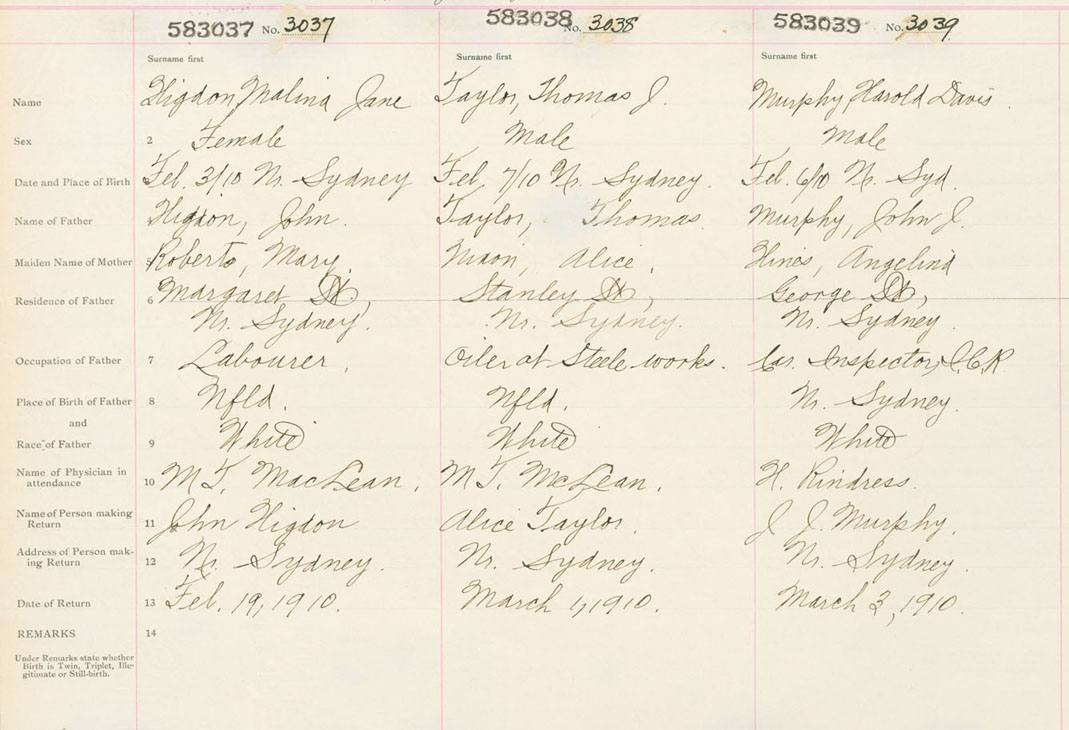 583037 No. 3037 583038 No. 3038 583039 No. 3039
Surname first Surname first Surname first
Name Higdon, Malina Jane Taylor, Thomas J. Murphy, Harold Davis.
Sex 2 Female Male Male
Date and Place of Birth Feb. 3/10 No. Sydney Feb. 7/10 No. Sydney. Feb. 6/10 No. Syd.
Name of Father Higdon, John. Taylor, Thomas. Murphy, John J.
Maiden Name of Mother 5 Roberts, Mary. Nixon, Alice. Hines, Angelina
Residence of Father 6 Margaret St, Stanley St, George St,
No. Sydney. No. Sydney. No. Sydney.
Occupation of Father 7 Labourer. Oiler at Steele works. Car. Inspector, I.C.R.
Place of Birth of Father 8 Nfld. Nfld. No. Sydney.
and
Race of Father 9 White White White
Name of Physician in attendance 10 M T. MacLean. M T. McLean. H. Rindress.
Name of Person making Return 11 John Higdon Alice Taylor. J. J. Murphy.
Address of Person mak-
ing Return 12 No. Sydney. No. Sydney. No. Sydney.
Date of Return 13 Feb. 19, 1910. March 1, 1910. March 3, 1910.
REMARKS 14
Under Remarks state whether
Birth is Twin, Triplet, Ille-
gitimate or Still-birth.